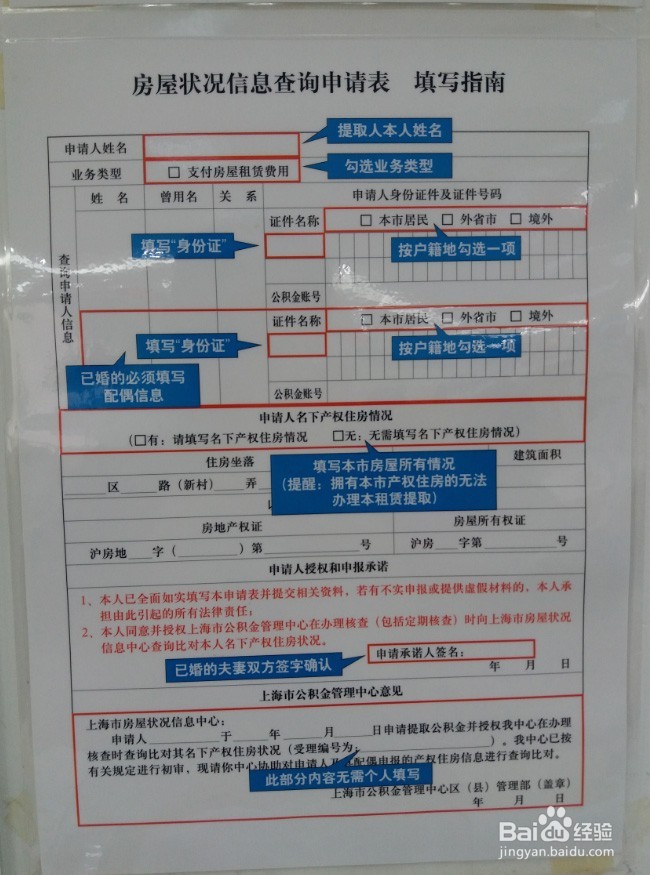 房屋状况信息查询申请表 填写指南
申请人姓名
提取人本人姓名
业务类型 □ 支付房屋租赁费用
勾选业务类型
姓 名 曾用名 关 系 申请人身份证件及证件号码
查询申请人信息
证件名称 □ 本市居民 □ 外省市 □ 境外
填写“身份证”
按户籍地勾选一项
公积金账号
证件名称 □ 本市居民 □ 外省市 □ 境外
填写“身份证”
按户籍地勾选一项
已婚的必须填写
配偶信息
公积金账号
申请人名下产权住房情况
(□有：请填写名下产权住房情况 □无：无需填写名下产权住房情况)
住房坐落 建筑面积
填写本市房屋所有情况
(提醒：拥有本市产权住房的无法
办理本租赁提取)
区____路（新村）____弄
房地产权证 房屋所有权证
沪房地____字（________）第________号 沪房____字第________号
申请人授权和申报承诺
1、本人已全面如实填写本申请表并提交相关资料，若有不实申报或提供虚假材料的，本人承
担由此引起的所有法律责任；
2、本人同意并授权上海市公积金管理中心在办理核查（包括定期核查）时向上海市房屋状况
信息中心查询比对本人名下产权住房状况。
已婚的夫妻双方签字确认
申请承诺人签名：
年 月 日
上海市公积金管理中心意见
上海市房屋状况信息中心：
申请人________于____年____月____日申请提取公积金并授权我中心在办理
核查时查询比对其名下产权住房状况（受理编号为：________）。我中心已按
有关规定进行初审，现请你中心协助对申请人及其配偶申报的产权住房信息进行查询比对。
此部分内容无需个人填写
上海市公积金管理中心区（县）管理部（盖章）
年 月 日
Baidu经验
jingyan.baidu.com